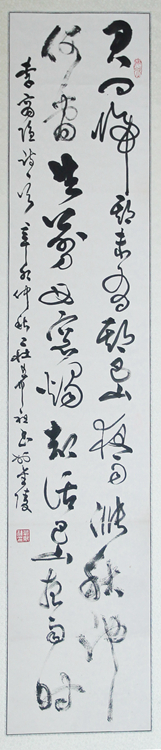 君问归期未有期巴山夜雨涨秋池
何当共剪西窗烛却话巴山夜雨时
李商隐诗 辛卯仲秋 于金陵